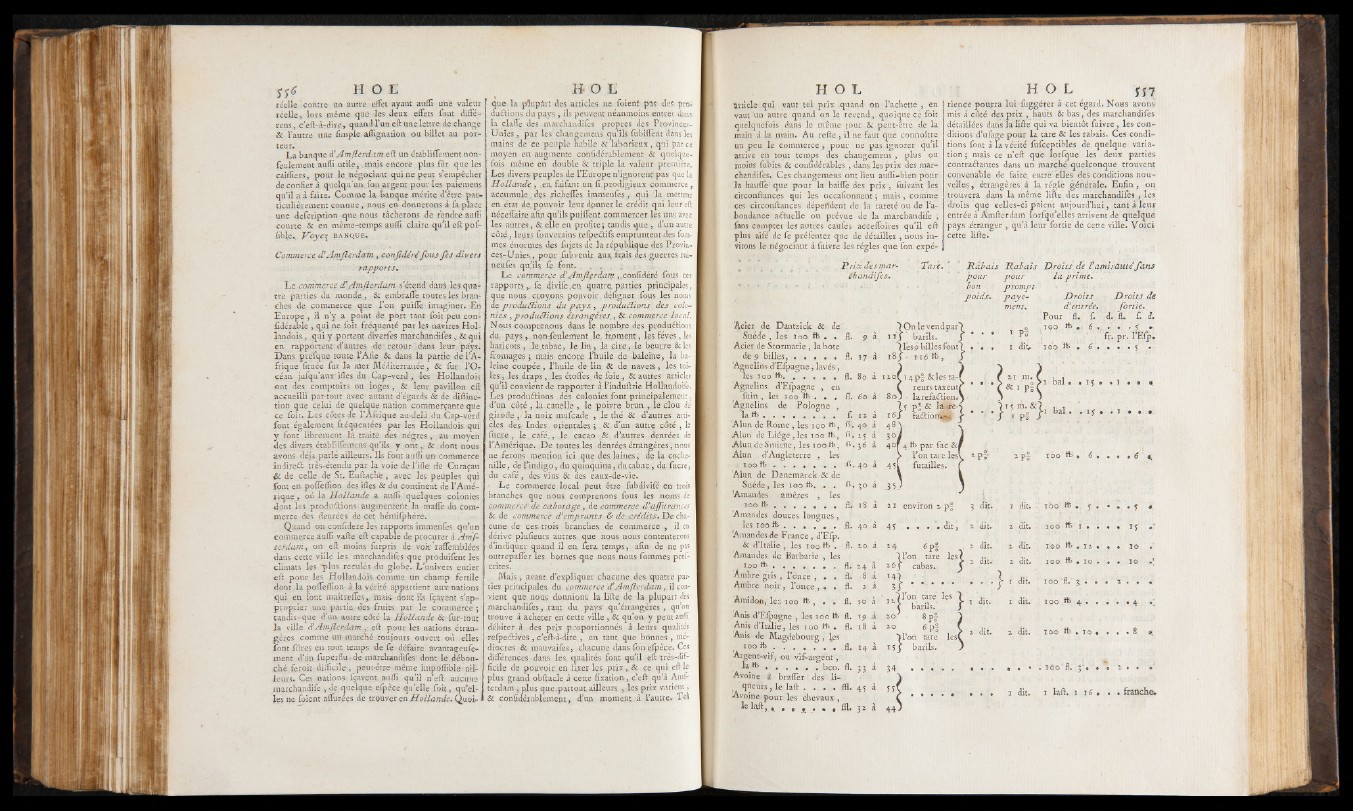 556 H O L
réelle contre un autre effet ayant aussi une valeur
réelle, lors même que les deux effets sont diffé-
rens, c'est-à-dire, quand l'un est une lettre de change
& l'autre une simple assignation ou billet au por-
teur.
La banque d'Amsterdam est un établissement non-
seulement aussi utile, mais encore plus sûr que les
caissiers, pour le négociant qui ne peut s'empêcher
de confier à quelqu'un son argent pour les paiemens
qu'il a à faire. Comme la banque mérite d'être par-
ticuliérement connue, nous en donnerons à sa place
une description que nous tâcherons de rendre aussi
courte & en même-temps aussi claire qu'il est pos-
sible. Voyez BANQUE.
Commerce d'Amsterdam, considéré sous ses divers
rapports.
Le commerce d'Amsterdam s'étend dans les qua-
tre parties du monde, & embrasse toutes les bran-
ches de commerce que l'on puisse imaginer. En
Europe, il n'y a point de port tant soit peu con-
sidérable, qui ne soit fréquenté par les navires Hol-
landois, qui y portent diverses marchandises, & qui
en rapportent d'autres de retour dans leur pays.
Dans presque toute l'Asie & dans la partie de l'A-
frique située sur la mer Méditerranée, & sur l'O-
céan jusqu'aux isles du Cap-verd, les Hollandois
ont des comptoirs ou loges, & leur pavillon est
accueilli par-tout avec autant d'égards & de distinc-
tion que celui de quelque nation commerçante que
ce soit. Les côtes de l'Afrique au-delà du Cap-verd
sont également fréquentées par les Hollandois qui
y font librement la traite des négres, au moyen
des divers établissemens qu'ils y ont, & dont nous
avons déja parlé ailleurs. Ils font aussi un commerce
indirect très-étendu par la voie de l'isle de Curaçau
& de celle de St. Eustache, avec les peuples qui
sont en possession des isles & du continent de l'Amé-
rique, où la Hollande a aussi quelques colonies
dont les productions augmentent la masse du com-
merce des denrées de cet hémisphère.
Quand on considere les rapports immenses qu'un
commerce aussi vaste est capable de procurer à Ams-
terdam, on est moins surpris de voir rassemblées
dans cette ville les marchandises que produisent les
climats les plus reculés du globe. L'univers entier
est pour les Hollandois comme un champ fertile
dont la possession à la vérité appartient aux nations
qui en sont maîtresses, mais dont ils sçavent s'ap-
proprier une partie des fruits par le commerce;
tandis-que d'un autre côté la Hollande & sur-tout
la ville d'Amsterdam, est pour les nations étran-
gères comme un marché toujours ouvert où elles
sont sûres en tout temps de se défaire avantageuse-
ment d'un superflu de marchandises dont le débou-
ché seroit difficile, peut-être même impossible ail-
leurs. Ces nations sçavent aussi qu'il n'est aucune
marchandise, de quelque espèce qu'elle soit, qu'el-
les ne soient assurées de trouver en Hollande. Quoi-
H O L
que la plûpart des articles ne soient pas des pro-
ductions du pays, ils peuvent néanmoins entrer dans
la classe des marchandises propres des Provinces-
Unies, par les changemens qu'ils subissent dans les
mains de ce peuple habile & laborieux, qui par ce
moyen en augmente considérablement & quelque-
fois même en double & triple la valeur première.
Les divers peuples de l'Europe n'ignorent pas que la
Hollande, en faisant un si prodigieux commerce,
accumule des richesses immenses, qui la mettent
en état de pouvoir leur donner le crédit qui leur est
nécessaire afin qu'ils puissent commercer les uns avec
les autres, & elle en profite; tandis que, d'un autre
côté, leurs souverains respectifs empruntent des som-
mes énormes des sujets de la république des Provin-
ces-Unies, pour subvenir aux frais des guerres rui-
neuses qu'ils se font.
Le commerce d'Amsterdam, considéré sous ces
rapports, se divise en quatre parties principales,
que nous croyons pouvoir désigner sous les noms
de productions du pays, productions des colo-
nies, productions étrangères, & commerce local.
Nous comprenons dans le nombre des productions
du pays, non-seulement le froment, les fèves, les
haricots, le tabac, le lin, la cire, le beurre & les
fromages; mais encore l'huile de baleine, la ba-
leine coupée, l'huile de lin & de navets, les toi-
les, les draps, les étoffes de soie, & autres articles
qu'il convient de rapporter à l'industrie Hollandoise.
Les productions des colonies sont principalement,
d'un côté, la canelle, le poivre brun, le clou de
girofle, la noix muscade, le thé & d'autres arti-
cles des Indes orientales; & d'un autre côté, le
sucre, le café, le cacao & d'autres denrées de
l'Amérique. De toutes les denrées étrangères, nous
ne ferons mention ici que des laines, de la coche-
nille, de l'indigo, du quinquina, du tabac, du sucre,
du café, des vins & des eaux-de-vie.
Le commerce local peut être subdivisé en trois
branches que nous comprenons sous les noms de
commerce de cabotage, de commerce d'assurances
& de commerce d'emprunts & de crédits. De cha-
cune de ces trois branches de commerce, il en
dérive plusieurs autres que nous nous contenterons
d'indiquer quand il en sera temps, afin de ne pas
outrepasser les bornes que nous nous sommes pres-
crites.
Mais, avant d'expliquer chacune des quatre par-
ties principales du commerce d'Amsterdam, il con-
vient que nous donnions la liste de la plupart des
marchandises, tant du pays qu'étrangères, qu'on
trouve à acheter en cette ville, & qu'on y peut aussi
débiter à des prix proportionnés à leurs qualités
respectives, c'est-à-dire, en tant que bonnes, mé-
diocres & mauvaises, chacune dans son espèce. Ces
différences dans les qualités font qu'il est très-dif-
ficile de pouvoir en fixer les prix, & ce qui est le
plus grand obstacle à cette fixation, c'est qu'à Ams-
terdam, plus que partout ailleurs, les prix varient,
& considérablement, d'un moment à l'autre. Tel
H O L
article qui vaut tel prix quand on l'achette, en
vaut un autre quand on le revend, quoique ce soit
quelquefois dans le même jour & peut-être de la
main à la main. Au reste, il ne faut que connoître
un peu le commerce, pour ne pas ignorer qu'il
arrive en tout temps des changemens, plus ou
moins subits & considérables, dans les prix des mar-
chandises. Ces changemens ont lieu aussi-bien pour
la hausse que pour la baisse des prix, suivant les
circonstances qui les occasionnent; mais, comme
ces circonstances dépendent de la rareté ou de l'a-
bondance actuelle ou prévue de la marchandise;
sans compter les autres causes accessoires qu'il est
plus aisé de se présenter que de détailler, nous in-
vitons le négociant à suivre les régles que son expé-
H O L 557
rience pourra lui suggérer à cet égard. Nous avons
mis à côté des prix, hauts & bas, des marchandises
détaillées dans la liste qui va bientôt suivre, les con-
ditions d'usage pour la tare & les rabais. Ces condi-
tions sont à la vérité susceptibles de quelque varia-
tion; mais ce n'est que lorsque les deux parties
contractantes dans un marché quelconque trouvent
convenable de faire entre elles des conditions nou-
velles, étrangères à la régle générale. Enfin, on
trouvera dans la même liste des marchandises, les
droits que celles-ci paient aujourd'hui, tant à leur
entrée à Amsterdam lorsqu'elles arrivent de quelque
pays étranger, qu'à leur sortie de cette ville. Voici
cette liste.
Prix des mar- Tare. Rabais Rabais Droits de l'amirauté sans
chandises. pour pour la prime.
bon prompt
poids. paye- Droits Droits de
ment. d'entrée. sortie.
Pour fl. s. d. fl. s. d.
Acier de Dantzick & de } On le vend par }
Suède, les 100 ℔ . . fl. 9 à 11 } barils. } . . . 1 p% 100 ℔ . 6 . . . . 5 .
Acier de Stormarie, la bote } les 9 billes font } fr. pr. l'Esp.
de 9 billes, . . . . . fl. 17 à 18 } 116 ℔, } . . . 1 dit. 100 ℔ . 6 . . . . 5 .
Agnelins d'Espagne, lavés,
les 100 ℔. . . . . . fl. 80 à 120 } 14 p% & les ra- } 21 m. }
Agnelins d'Espagne, en reurs taxent & 1 p% } 1 bal. . 15 . . 1 . . .
suin, les 100 ℔ . . . fl. 60 à 80 } la refaction.
Agnelins de Pologne, } 5 p% & la re- } } 15 m. & }
la ℔ . . . . . . . . s. 12 à 16 } faction. } } 1 p% } 1 bal. . 15 . . 1 . . .
Alun de Rome, les 100 ℔, fl. 40 à 48
Alun de Liége, les 100 ℔, fl. 25 à 30
Alun de Smirne, les 100 ℔, fl. 36 à 40 4 ℔ par sac &
Alun d'Angleterre, les l'on tare les 2 p% 2 p% 100 ℔ . 6 . . . . 6 .
100 ℔ . . . . . . . fl. 40 à 45 futailles.
Alun de Danemarck & de
Suède, les 100 ℔. . . fl. 30 à 35
Amandes amères, les
100 ℔ . . . . . . . fl. 18 à 21 environ 2 p% 3 dit. 1 dit. 100 ℔ . 5 . . . . 5 .
Amandes douces longues,
les 100 ℔ . . . . . . fl. 40 à 45 . . . . dit, 2 dit. 2 dit. 100 ℔ 1 . . . . 15 .
Amandes de France, d'Esp.
& d'Italie, les 100 ℔ . fl. 20 à 24 6 p% 2 dit. 2 dit. 100 ℔ . 12 . . . 10 .
Amandes de Barbarie, les } l'on tare les }
100 ℔ . . . . . . . fl. 24 à 26 } cabas. } 2 dit. 2 dit. 100 ℔ . 10 . . . 10 .
Ambre gris, l'once, . . fl. 8 à 14 }
Ambre noir, l'once, . . fl. 2 à 3 } . . . . . . . . . } 1 dit. 100 fl. 3 . . . 2 . . .
Amidon, les 100 ℔, . . fl. 10 à 12 } l'on tare les barils. } 1 dit. 1 dit. 100 ℔ 4 . . . . . 4 .
Anis d'Espagne, les 100 ℔ fl. 19 à 20 8 p%
Anis d'Italie, les 100 ℔ . fl. 18 à 20 6 p%
Anis de Magdebourg, les } l'on tare les } 2 dit. 2 dit. 100 ℔ . 10 . . . . 8 .
100 ℔ . . . . . . . fl. 14 à 15 } barils.
Argent-vif, ou vif-argent,
la ℔ . . . . . . bco. fl. 33 à 34 . . . . . . . . . . . 100 fl. 3 . . . 2 . . .
Avoine à brasser des li-
queurs, le last . . . . ffl. 45 à 55 }
Avoine pour les chevaux, } . . . . . . . . . 1 dit. 1 last. 1 16 . . . franche.
le last, . . . . . . . ffl. 32 à 44 }